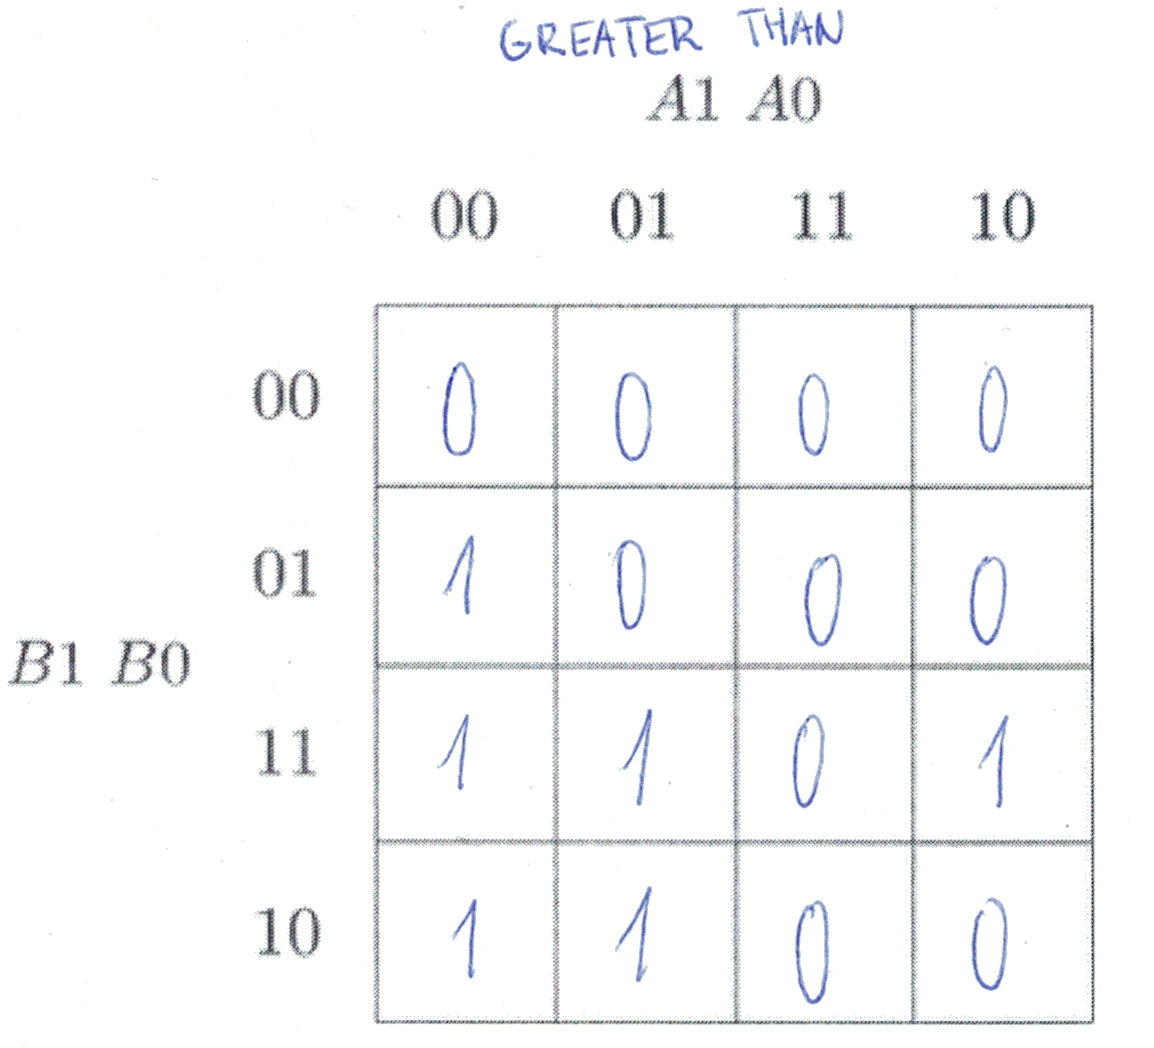 GREATER THAN
A1 A0
00 01 11 10
00 0 0 0 0
01 1 0 0 0
B1 B0
11 1 1 0 1
10 1 1 0 0